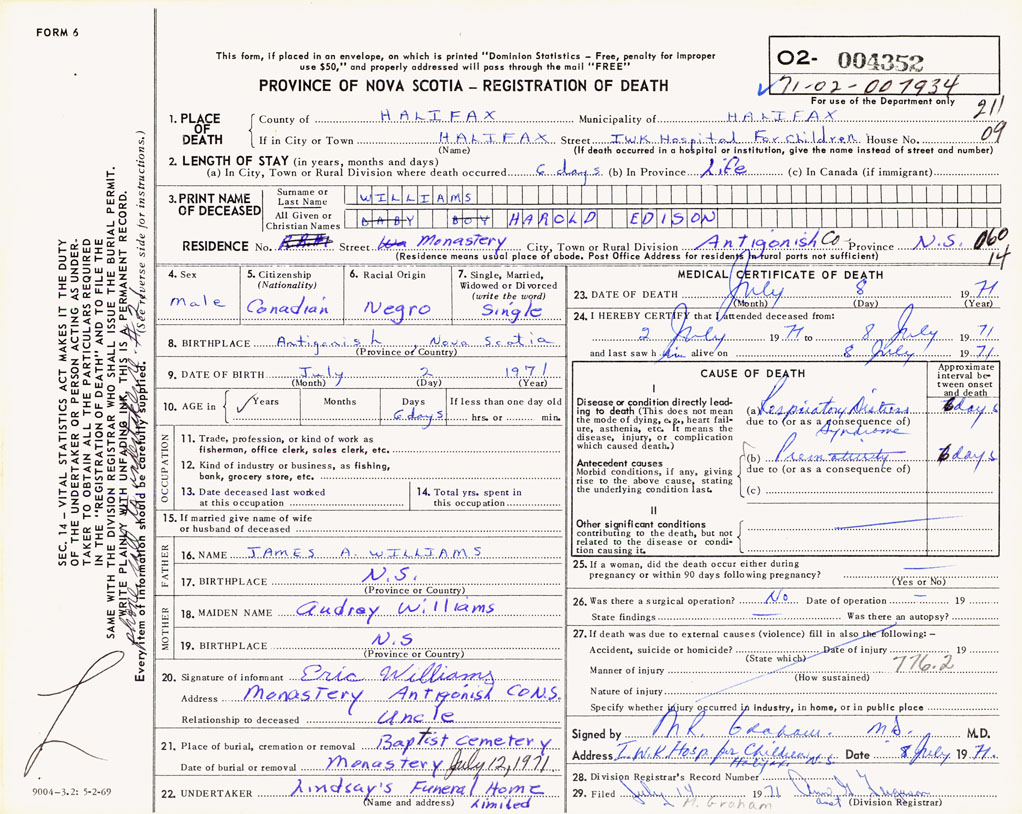 FORM 6
This form, if placed in an envelope, on which is printed "Dominion Statistics – Free, penalty for improper
use $50," and properly addressed will pass through the mail "FREE"
PROVINCE OF NOVA SCOTIA – REGISTRATION OF DEATH
02- 004352
71-02-007934
For use of the Department only
211
09
1. PLACE OF DEATH
County of HALIFAX Municipality of HALIFAX
If in City or Town HALIFAX Street IWK Hospital For Children House No.
(Name) (If death occurred in a hospital or institution, give the name instead of street and number)
2. LENGTH OF STAY (in years, months and days)
(a) In City, Town or Rural Division where death occurred 6 days (b) In Province Life (c) In Canada (if immigrant)
3. PRINT NAME OF DECEASED
Surname or Last Name WILLIAMS
All Given or Christian Names BABY BOY HAROLD EDISON
RESIDENCE No. Street Monastery City, Town or Rural Division Antigonish Co Province N.S. 060
14
(Residence means usual place of abode. Post Office Address for residents in rural parts not sufficient)
4. Sex
male
5. Citizenship
(Nationality)
Canadian
6. Racial Origin
Negro
7. Single, Married,
Widowed or Divorced
(write the word)
Single
8. BIRTHPLACE Antigonish, Nova Scotia
(Province or Country)
9. DATE OF BIRTH July 2 1971
(Month) (Day) (Year)
10. AGE in
Years Months Days If less than one day old
6 days hrs. or min.
OCCUPATION
11. Trade, profession, or kind of work as
fisherman, office clerk, sales clerk, etc.
12. Kind of industry or business, as fishing,
bank, grocery store, etc.
13. Date deceased last worked
at this occupation
14. Total yrs. spent in
this occupation
15. If married give name of wife
or husband of deceased
FATHER
16. NAME JAMES A. WILLIAMS
17. BIRTHPLACE N.S.
(Province or Country)
MOTHER
18. MAIDEN NAME Audrey Williams
19. BIRTHPLACE N.S
(Province or Country)
20. Signature of informant Eric Williams
Address Monastery Antigonish Co N.S.
Relationship to deceased Uncle
21. Place of burial, cremation or removal Baptist Cemetery
Date of burial or removal Monastery July 12, 1971
22. UNDERTAKER Lindsay's Funeral Home
(Name and address) Limited
MEDICAL CERTIFICATE OF DEATH
23. DATE OF DEATH July 8 1971
(Month) (Day) (Year)
24. I HEREBY CERTIFY that I attended deceased from:
2 July 1971 to 8 July 1971
and last saw h im alive on 8 July 1971
CAUSE OF DEATH
Approximate
interval be-
tween onset
and death
I
Disease or condition directly lead-
ing to death (This does not mean
the mode of dying, e.g., heart fail-
ure, asthenia, etc. It means the
disease, injury, or complication
which caused death.)
(a) Respiratory Distress 6 days
due to (or as a consequence of)
Syndrome
Antecedent causes
Morbid conditions, if any, giving
rise to the above cause, stating
the underlying condition last.
(b) Prematurity 6 days
due to (or as a consequence of)
(c)
II
Other significant conditions
contributing to the death, but not
related to the disease or condi-
tion causing it.
25. If a woman, did the death occur either during
pregnancy or within 90 days following pregnancy?
(Yes or No)
26. Was there a surgical operation? No Date of operation — 19
State findings — Was there an autopsy?
27. If death was due to external causes (violence) fill in also the following: –
Accident, suicide or homicide? Date of injury 19
(State which) 776.2
Manner of injury
(How sustained)
Nature of injury
Specify whether injury occurred in industry, in home, or in public place
Signed by M.R. Graham MD. M.D.
Address I.W.K Hosp for Children Date 8 July 1971.
Halifax N.S
28. Division Registrar's Record Number
29. Filed July 14 1971
(Division Registrar)
M. Graham
SEC. 14 – VITAL STATISTICS ACT MAKES IT THE DUTY
OF THE UNDERTAKER OR PERSON ACTING AS UNDER-
TAKER TO OBTAIN ALL THE PARTICULARS REQUIRED
IN THE "REGISTRATION OF DEATH" AND TO FILE THE
SAME WITH THE DIVISION REGISTRAR WHO SHALL ISSUE THE BURIAL PERMIT.
WRITE PLAINLY WITH UNFADING INK, THIS IS A PERMANENT RECORD.
Every item of information should be carefully supplied. (See reverse side for instructions.)
9004-3.2: 5-2-69